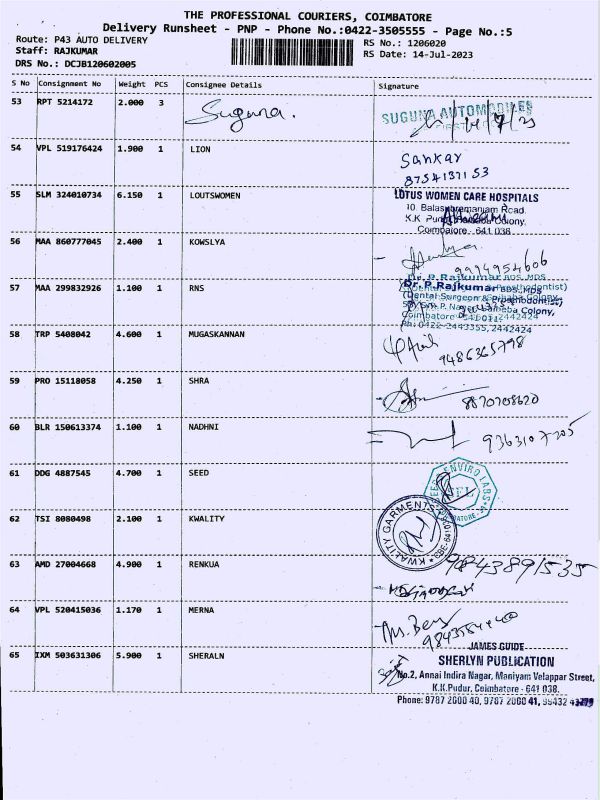 THE PROFESSIONAL COURIERS, COIMBATORE
Delivery Runsheet - PNP - Phone No.:0422-3505555 - Page No.:5
Route: P43 AUTO DELIVERY RS No.: 1206020
Staff: RAJKUMAR RS Date: 14-Jul-2023
DRS No.: DCJB120602005
S No Consignment No Weight PCS Consignee Details Signature
53 RPT 5214172 2.000 3 Suguna. SUGUNA AUTOMOBILES
54 VPL 519176424 1.900 1 LION Sankar
8754137153
55 SLM 324010734 6.150 1 LOUTSWOMEN LOTUS WOMEN CARE HOSPITALS
10, Balasubramaniam Road,
K.K Colony,
Coimbatore - 641 038.
56 MAA 860777045 2.400 1 KOWSLYA
9994954606
57 MAA 299832926 1.100 1 RNS Dr. P. Rajkumar BDS., MDS
(Dental Surgeon
Colony,
Coimbatore
Ph: 0422-2443355, 2442424
58 TRP 5408042 4.600 1 MUGASKANNAN
9486365798
59 PRO 15118058 4.250 1 SHRA 8870708620
60 BLR 150613374 1.100 1 NADHNI 9363107205
61 DDG 4887545 4.700 1 SEED ENVIRO LABS
62 TSI 8080498 2.100 1 KWALITY KWALITY GARMENTS
63 AMD 27004668 4.900 1 RENKUA 9843891535
64 VPL 520415036 1.170 1 MERNA
65 IXM 503631306 5.900 1 SHERALN JAMES GUIDE
SHERLYN PUBLICATION
No.2, Annai Indira Nagar, Maniyam Velappar Street,
K.K.Pudur, Coimbatore - 641 038.
Phone: 9787 2000 40, 9787 2000 41, 99432